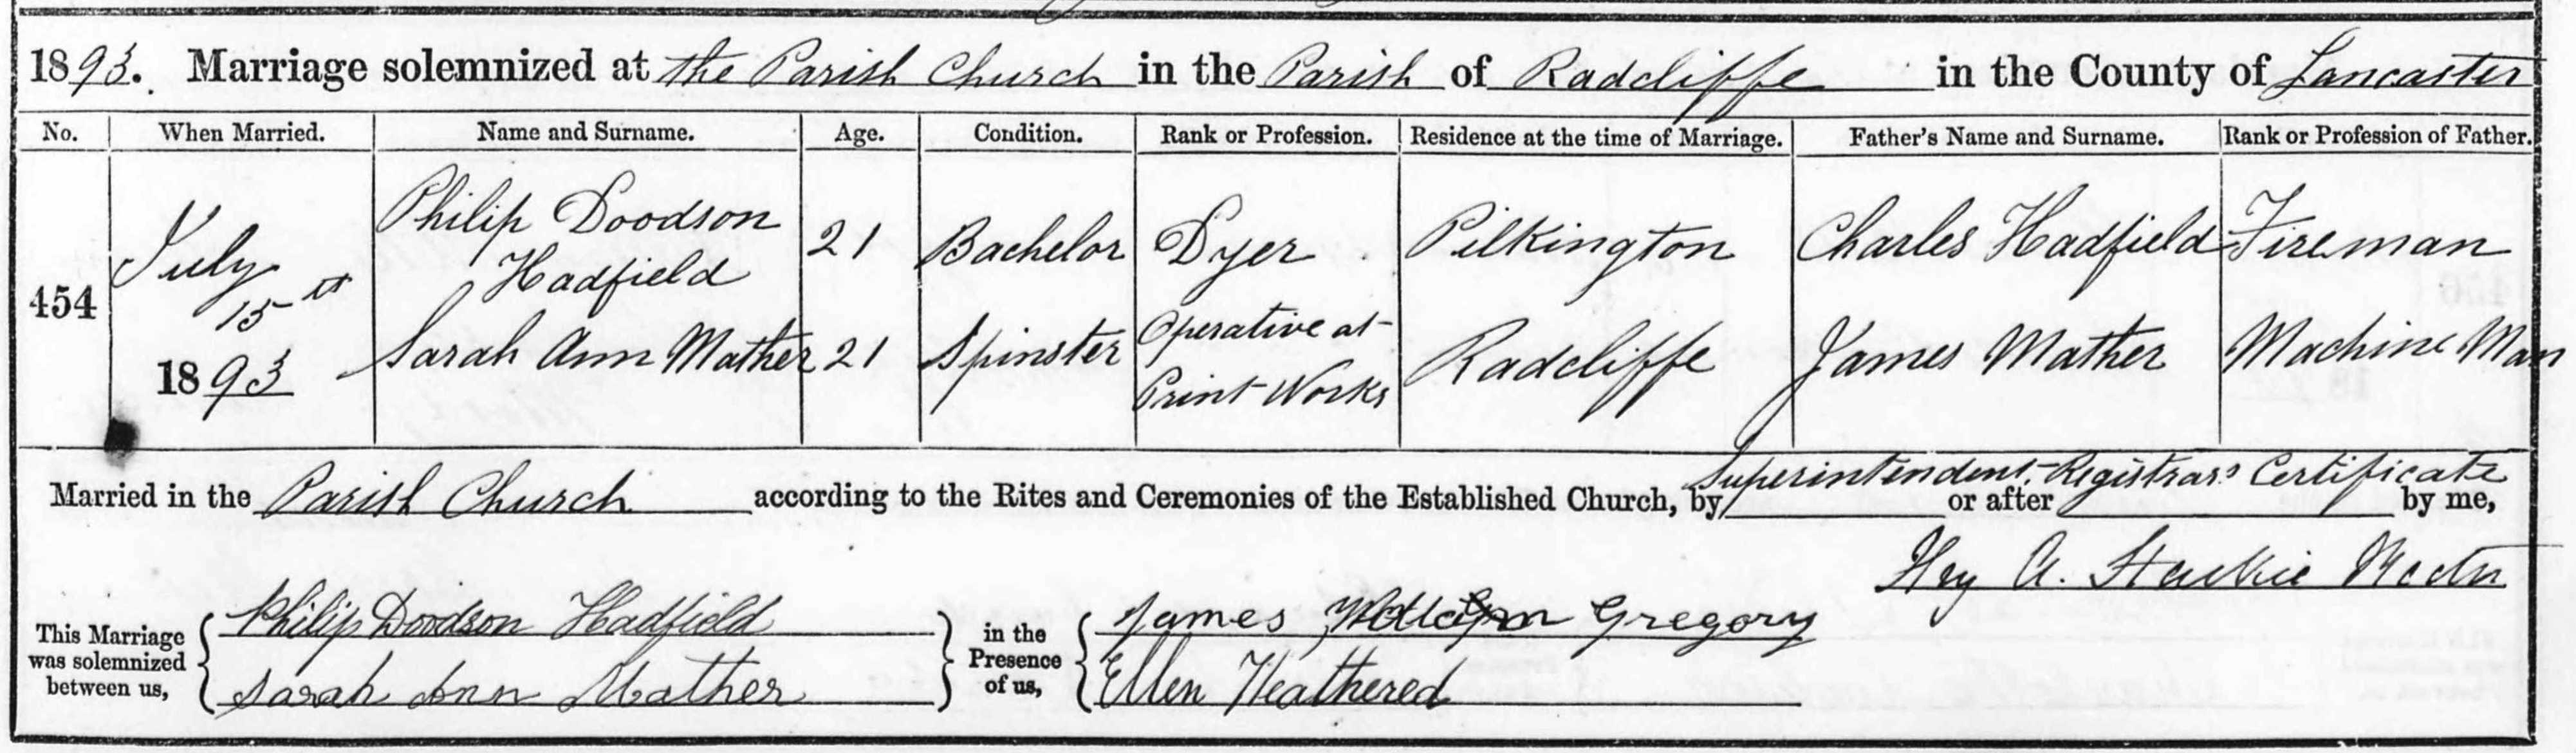 1893. Marriage solemnized at the Parish Church in the Parish of Radcliffe in the County of Lancaster
No. When Married. Name and Surname. Age. Condition. Rank or Profession. Residence at the time of Marriage. Father's Name and Surname. Rank or Profession of Father.
454 July 15th 1893
Philip Doodson Hadfield 21 Bachelor Dyer Pilkington Charles Hadfield Fireman
Sarah Ann Mather 21 Spinster Operative at Print Works Radcliffe James Mather Machine Man
Superintendent Registrar's Certificate
Married in the Parish Church according to the Rites and Ceremonies of the Established Church, by or after by me,
Hy A. Starkie Rector
This Marriage was solemnized between us,
Philip Doodson Hadfield
Sarah Ann Mather
in the Presence of us,
James Gregory
Ellen Weathered